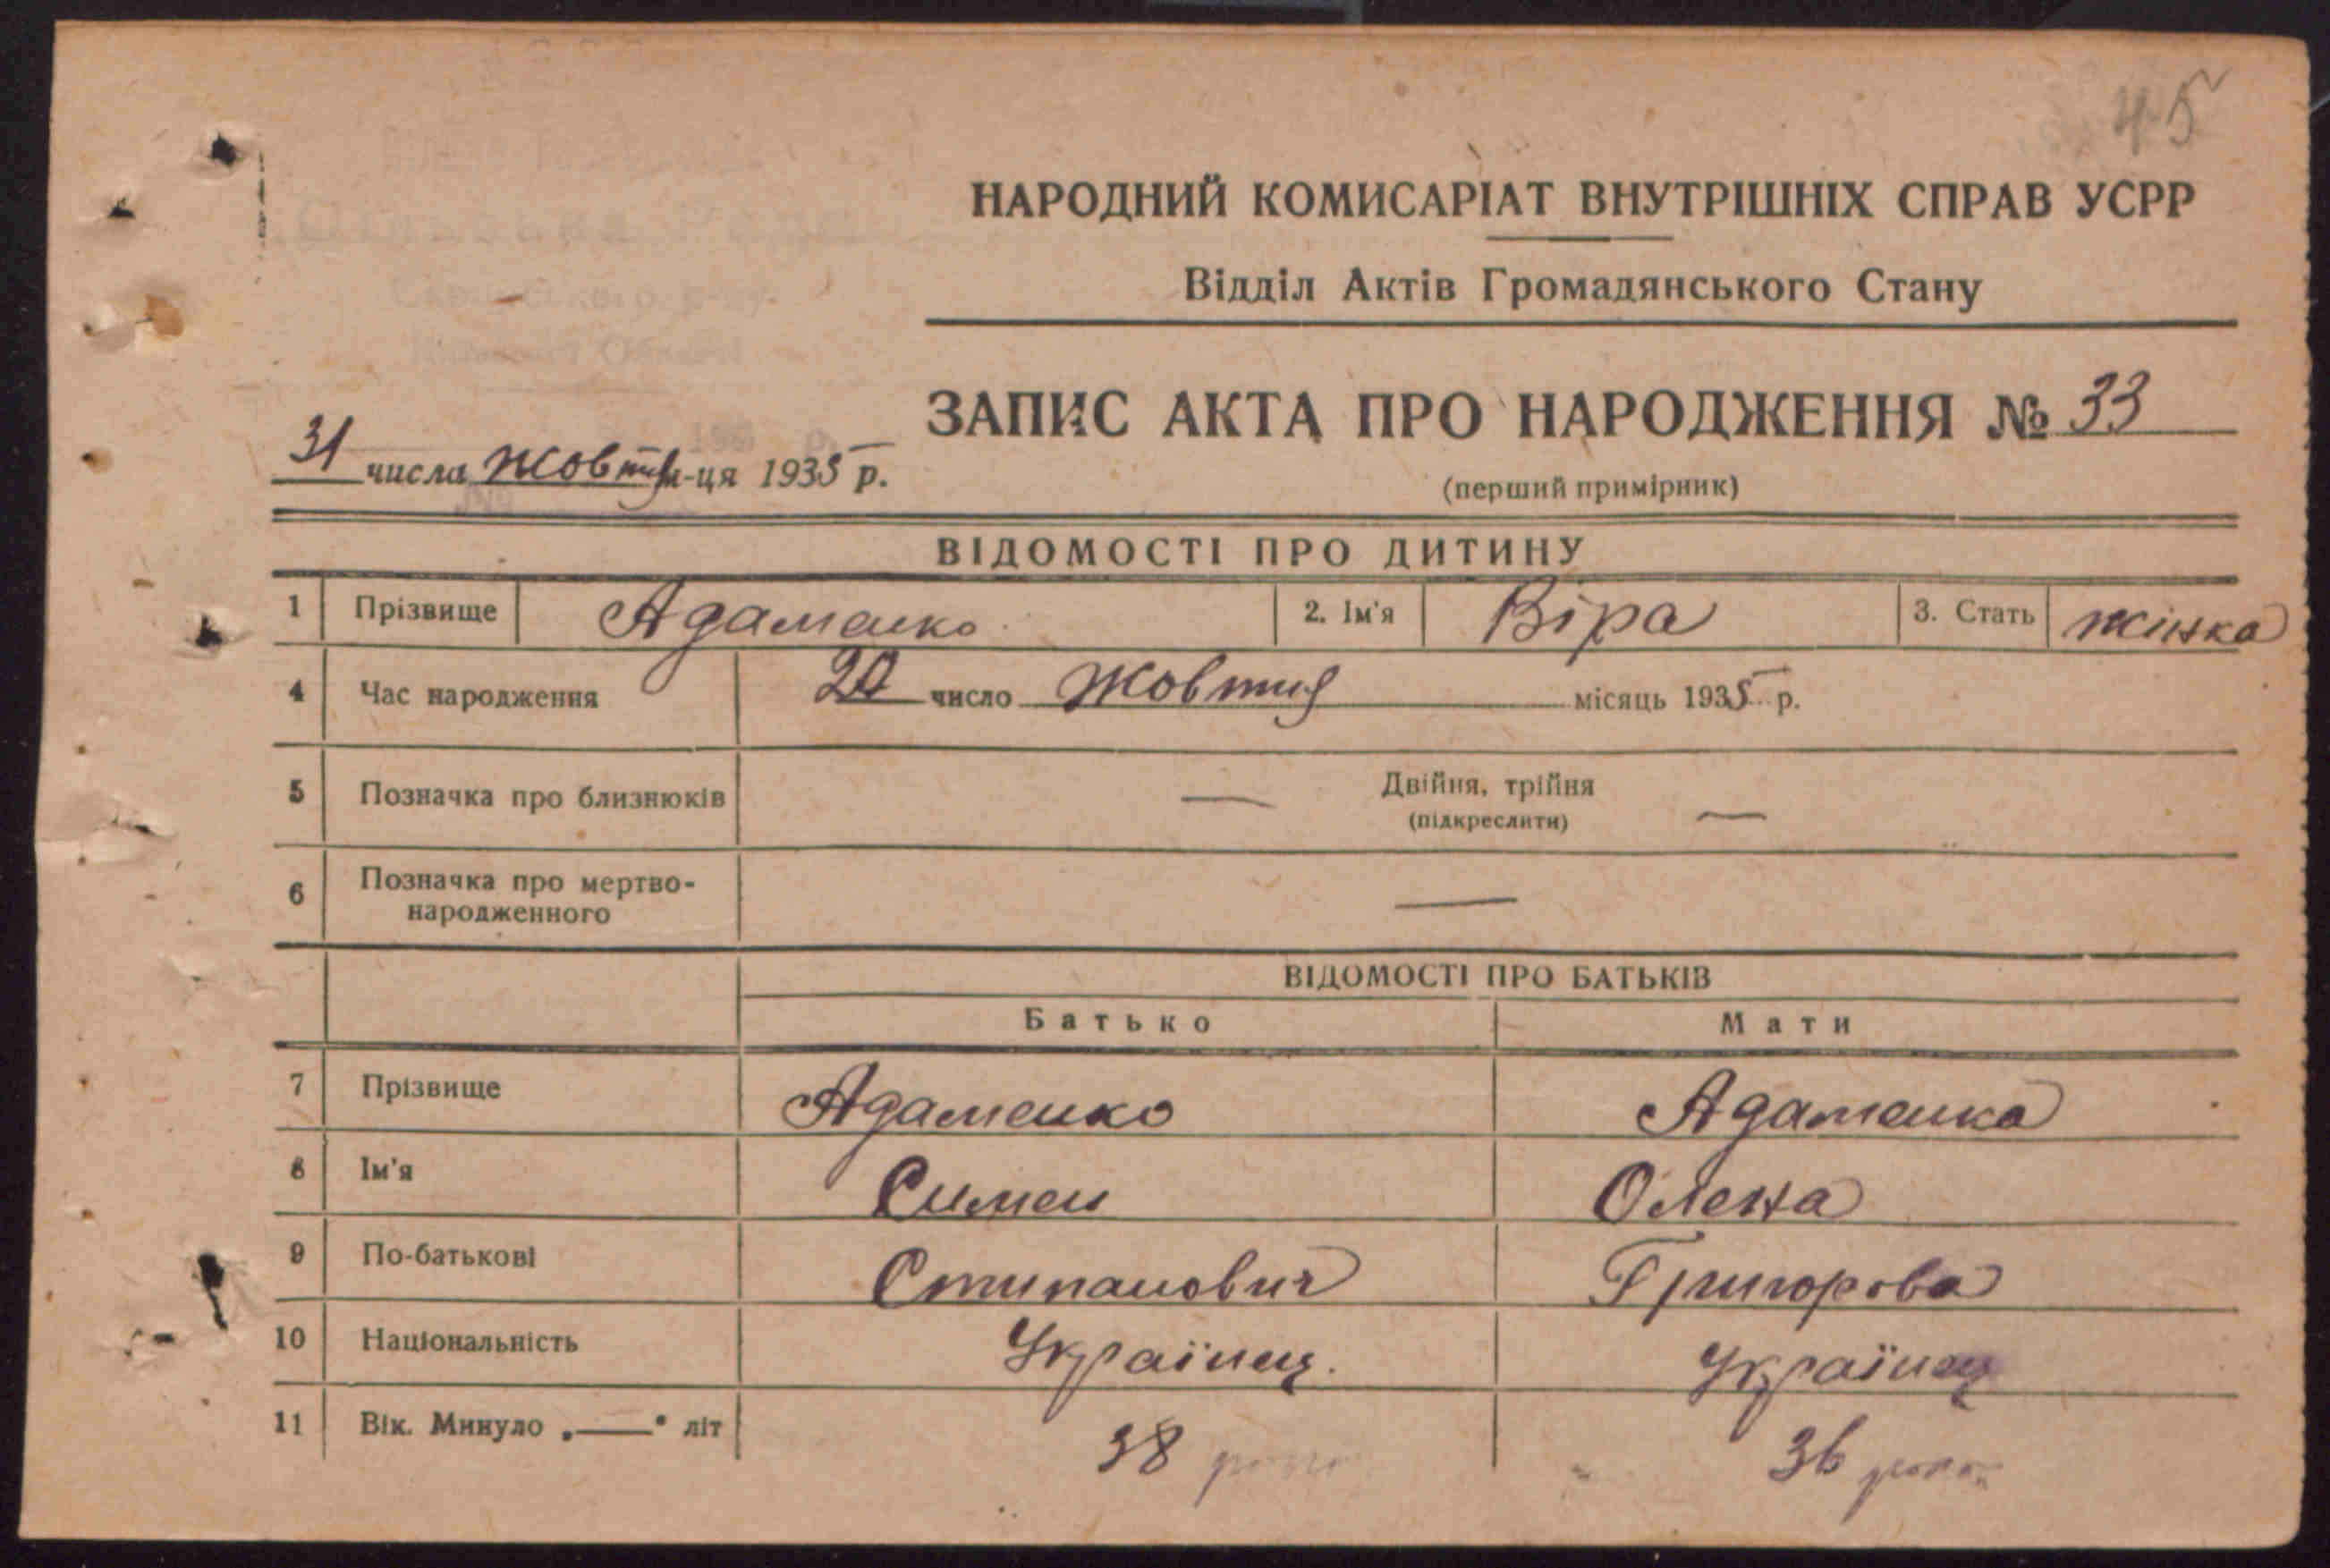 45
НАРОДНИЙ КОМИСАРІАТ ВНУТРІШНІХ СПРАВ УСРР
Відділ Актів Громадянського Стану
ЗАПИС АКТА ПРО НАРОДЖЕННЯ № 33
31 числа Жовтня м-ця 1935 р.
(перший примірник)
ВІДОМОСТІ ПРО ДИТИНУ
1 Прізвище Адаменко 2. Ім'я Віра 3. Стать жінка
4 Час народження 20 число Жовтня місяць 1935 р.
5 Позначка про близнюків — Двійня, трійня —
(підкреслити)
6 Позначка про мертво-
народженного —
ВІДОМОСТІ ПРО БАТЬКІВ
Батько Мати
7 Прізвище Адаменко Адаменка
8 Ім'я Симен Олена
9 По-батькові Стипанович Григорова
10 Національність Українец. Українец
11 Вік. Минуло „—" літ 38 36